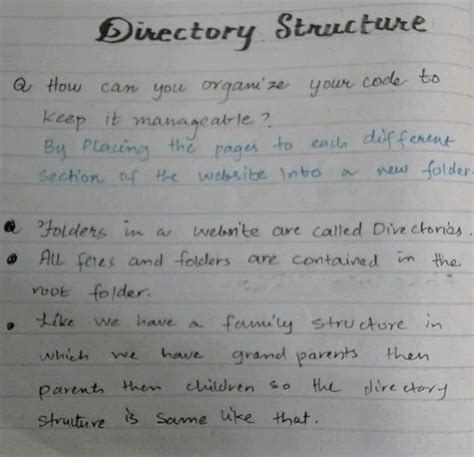 Directory Structure
Q How can you organize your code to
keep it manageable?
By Placing the pages to each different
section of the website Into a new folder.
Folders in a website are called Directories.
• All files and folders are contained in the
root folder.
• Like we have a family structure in
which we have grand parents then
parents then children so the directory
structure is same like that.